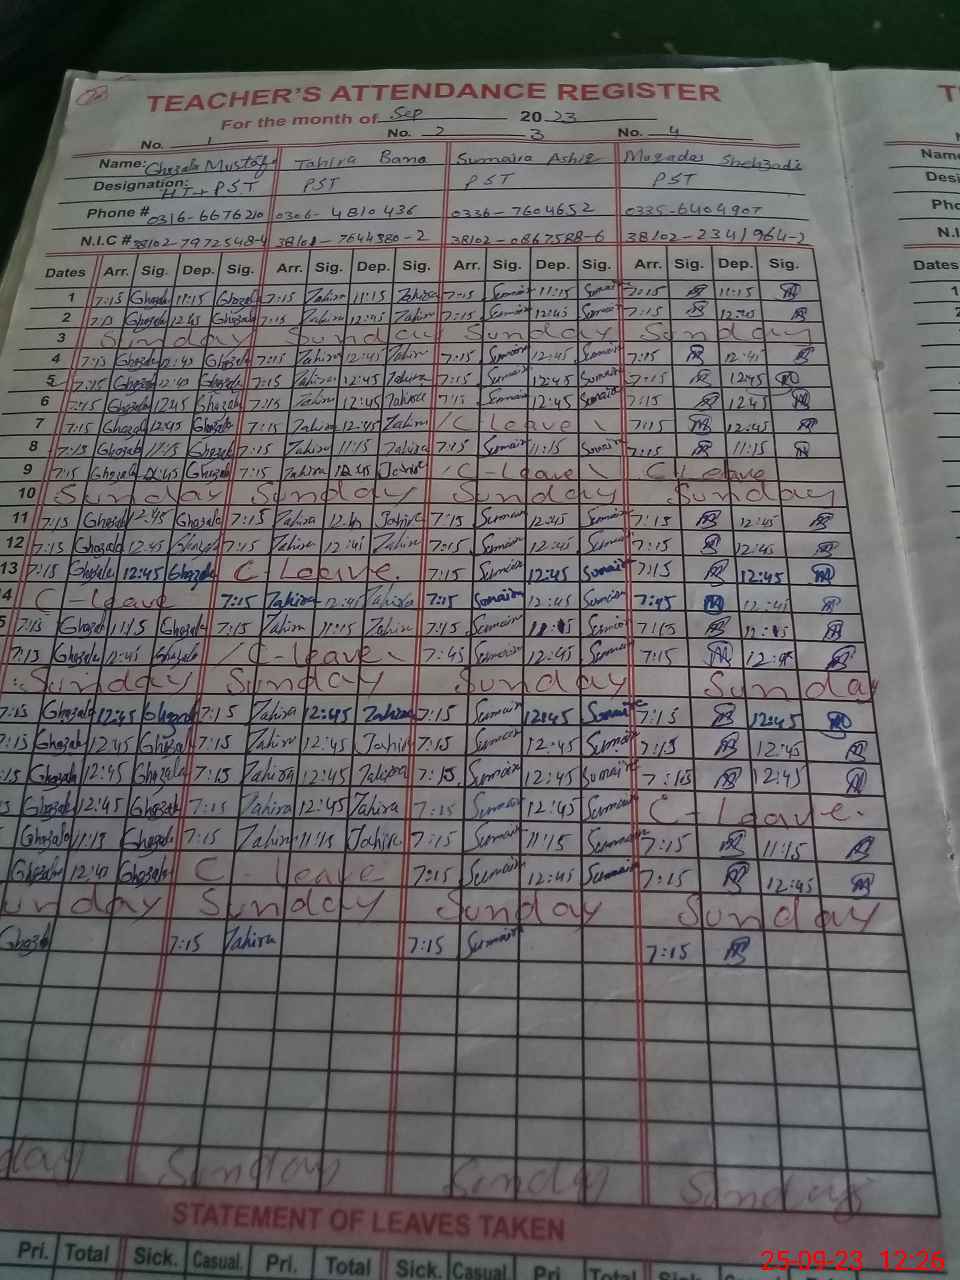 TEACHER'S ATTENDANCE REGISTER
For the month of Sep 2023
No. 1 No. 2 3 No. 4
Name: Ghazala Mustafa Tahira Bano Sumaira Ashiq Muqadas Shehzadi
Designation: HT+PST PST PST PST
Phone # 0316-6676210 0306-4810436 0336-7604652 0335-6404907
N.I.C # 38102-7972548-4 38101-7644980-2 38102-0867588-6 38102-2341964-2
Dates Arr. Sig. Dep. Sig. Arr. Sig. Dep. Sig. Arr. Sig. Dep. Sig. Arr. Sig. Dep. Sig.
1 7:15 Ghazala 11:15 Ghazala 7:15 Tahira 11:15 Tahira 7:15 Sumaira 11:15 Sumaira 7:15 11:15
2 7:15 Ghazala 12:45 Ghazala 7:15 Tahira 12:45 Tahira 7:15 Sumaira 12:45 Sumaira 7:15 12:45
3 Sunday Sunday Sunday Sunday
4 7:15 Ghazala 12:45 Ghazala 7:15 Tahira 12:45 Tahira 7:15 Sumaira 12:45 Sumaira 7:15 12:45
5 7:15 Ghazala 12:45 Ghazala 7:15 Tahira 12:45 Tahira 7:15 Sumaira 12:45 Sumaira 7:15 12:45
6 7:15 Ghazala 12:45 Ghazala 7:15 Tahira 12:45 Tahira 7:15 Sumaira 12:45 Sumaira 7:15 12:45
7 7:15 Ghazala 12:45 Ghazala 7:15 Tahira 12:45 Tahira C-Leave 7:15 12:45
8 7:15 Ghazala 11:15 Ghazala 7:15 Tahira 11:15 Tahira 7:15 Sumaira 11:15 Sumaira 7:15 11:15
9 7:15 Ghazala 12:45 Ghazala 7:15 Tahira 12:45 Tahira C-Leave C-Leave
10 Sunday Sunday Sunday Sunday
11 7:15 Ghazala 12:45 Ghazala 7:15 Tahira 12:45 Tahira 7:15 Sumaira 12:45 Sumaira 7:15 12:45
12 7:15 Ghazala 12:45 Ghazala 7:15 Tahira 12:45 Tahira 7:15 Sumaira 12:45 Sumaira 7:15 12:45
13 7:15 Ghazala 12:45 Ghazala C-Leave. 7:15 Sumaira 12:45 Sumaira 7:15 12:45
4 C-leave 7:15 Tahira 12:45 Tahira 7:15 Sumaira 12:45 Sumaira 7:45 12:45
5 7:15 Ghazala 11:15 Ghazala 7:15 Tahira 11:15 Tahira 7:15 Sumaira 11:15 Sumaira 7:15
7:15 Ghazala 12:45 Ghazala C-leave 7:45 Sumaira 12:45 Sumaira 7:15 12:45
Sunday Sunday Sunday Sunday
7:15 Ghazala 12:45 Ghazala 7:15 Tahira 12:45 Tahira 7:15 Sumaira 12:45 Sumaira 7:15 12:45
7:15 Ghazala 12:45 Ghazala 7:15 Tahira 12:45 Tahira 7:15 Sumaira 12:45 Sumaira 7:15 12:45
:15 Ghazala 12:45 Ghazala 7:15 Tahira 12:45 Tahira 7:15 Sumaira 12:45 Sumaira 7:15 12:45
5 Ghazala 12:45 Ghazala 7:15 Tahira 12:45 Tahira 7:15 Sumaira 12:45 Sumaira C-Leave.
Ghazala 11:15 Ghazala 7:15 Tahira 11:15 Tahira 7:15 Sumaira 11:15 Sumaira 7:15 11:15
Ghazala 12:45 Ghazala C-leave 7:15 Sumaira 12:45 Sumaira 7:15 12:45
unday Sunday Sunday Sunday
Ghazala 7:15 Tahira 7:15 Sumaira 7:15
day Sunday Sunday Sunday
STATEMENT OF LEAVES TAKEN
Pri. Total Sick. Casual. Pri. Total Sick. Casual. Pri. Total Sick.
T
Name
Desi
Pho
N.I.
Dates
25-09-23 12:26